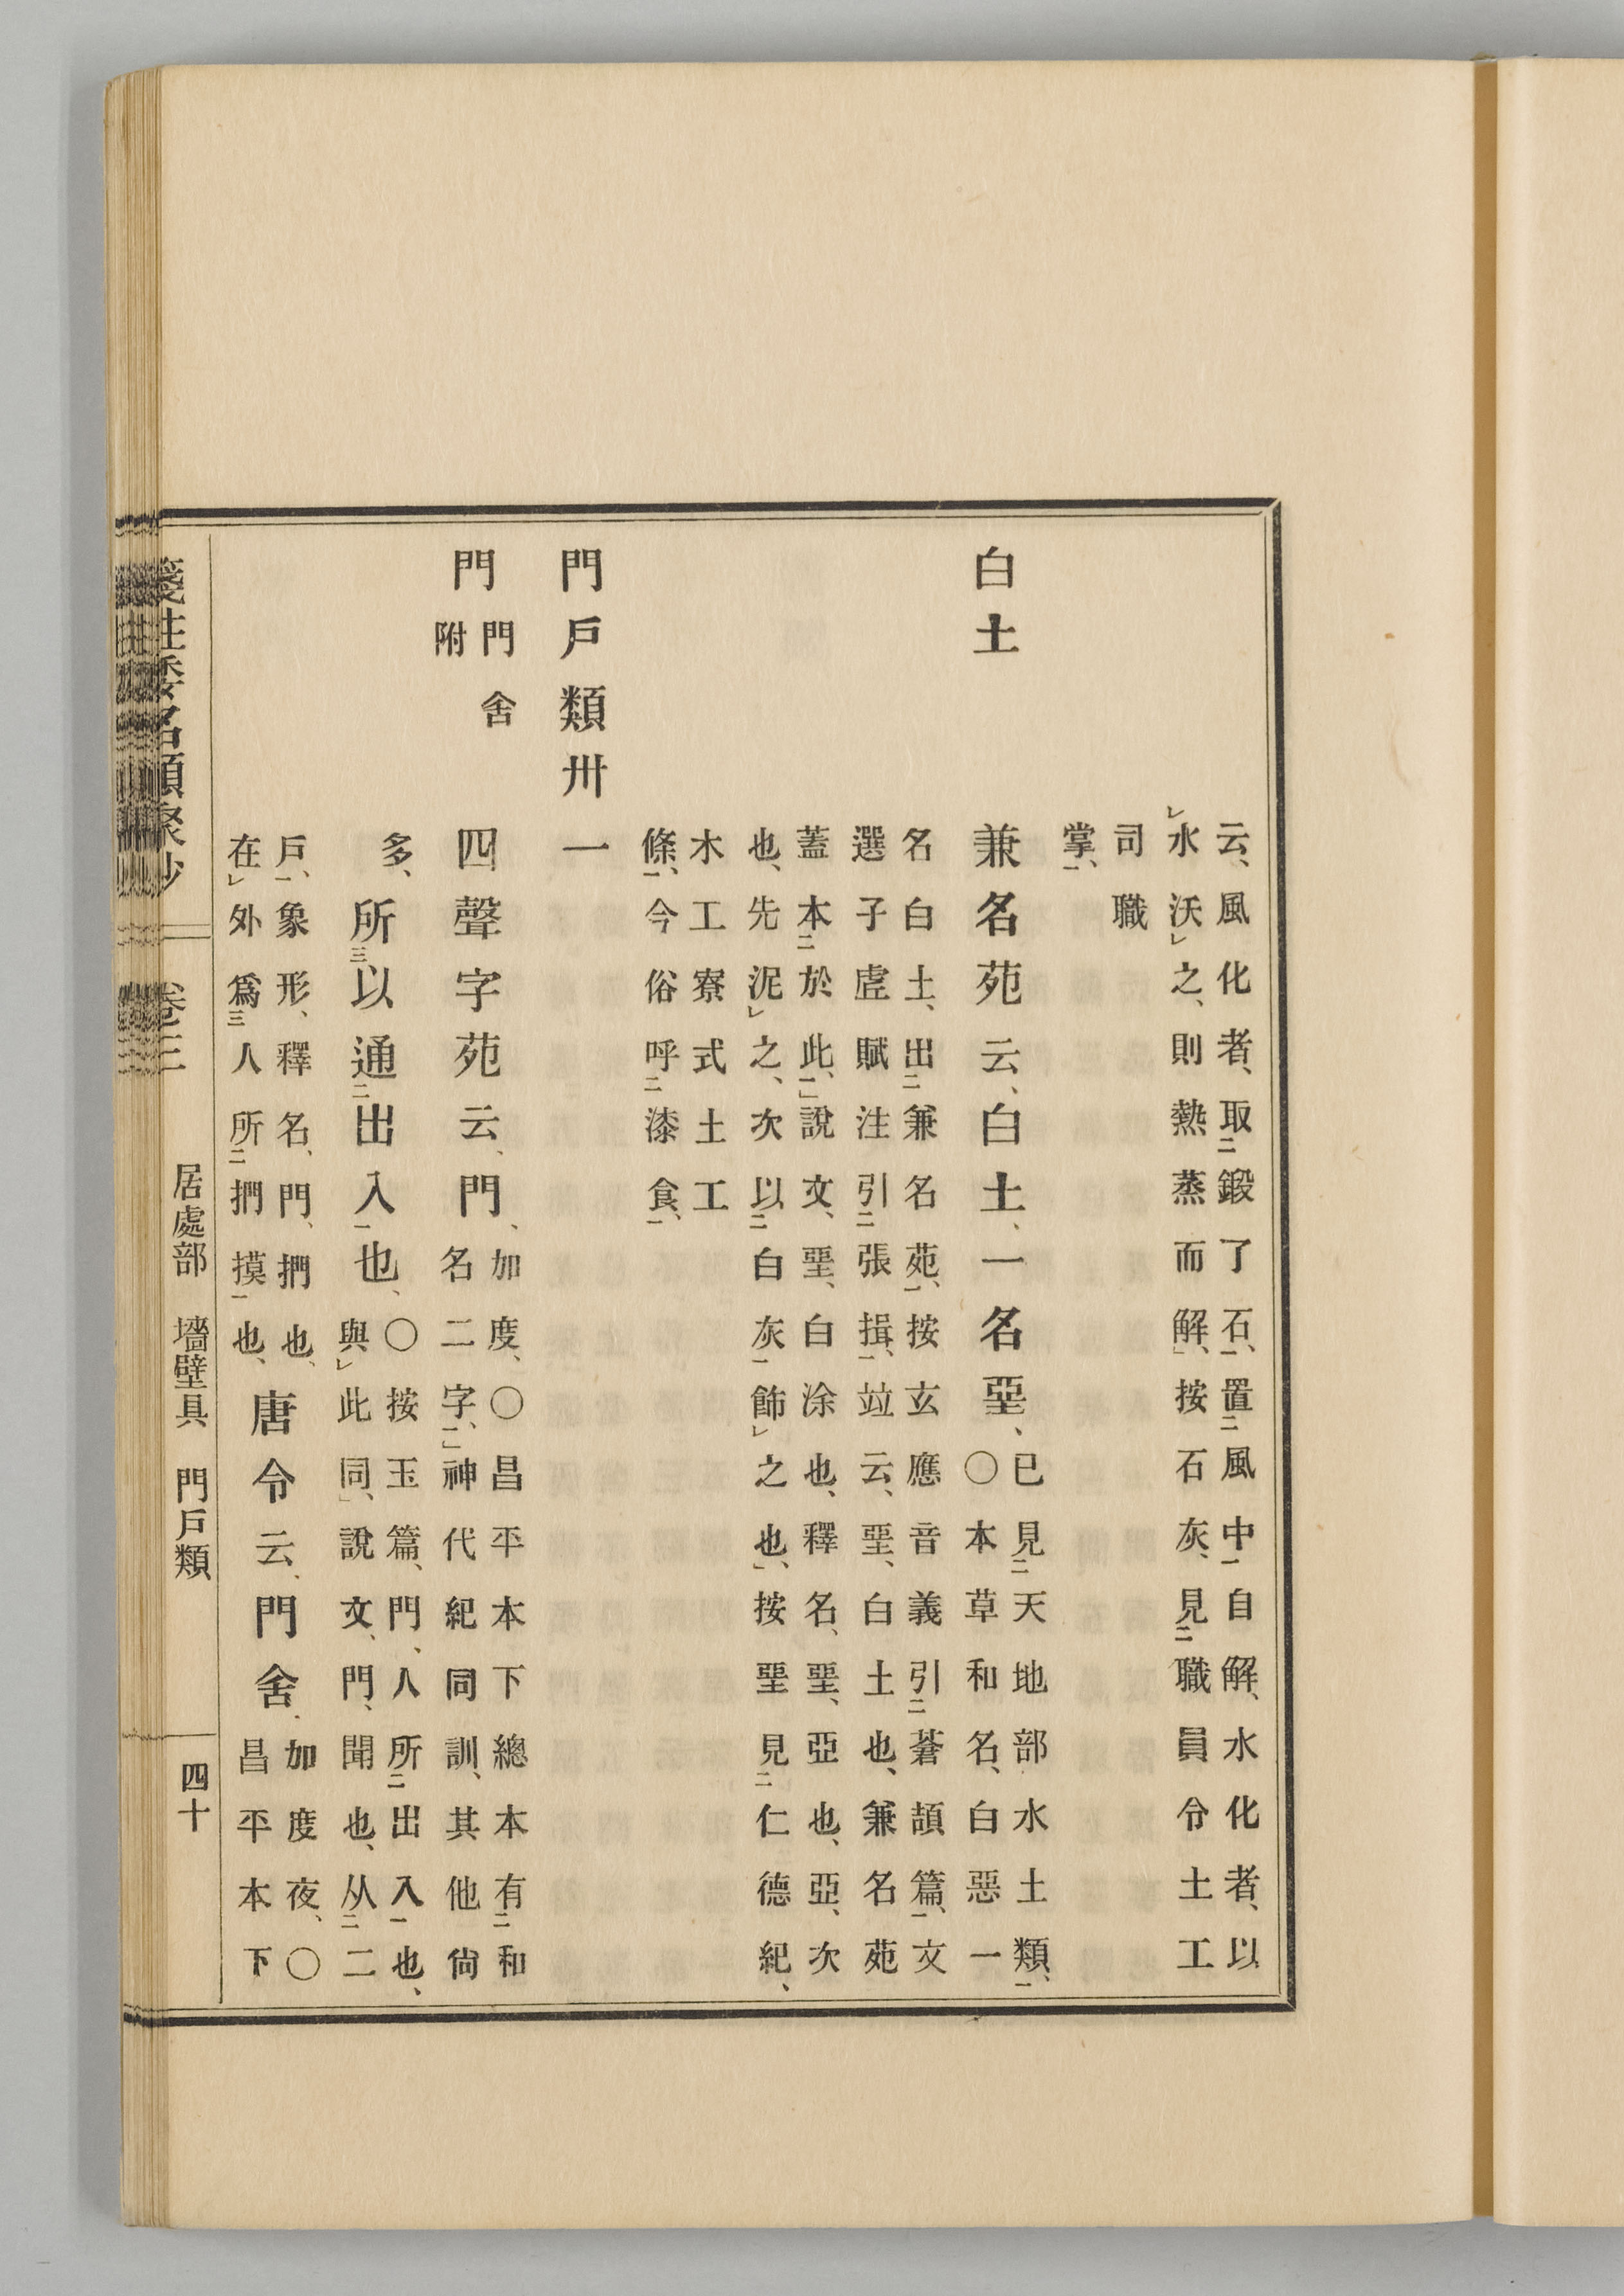 云、風化者、取㆓鍛了石㆒、置㆓風中㆒自解、水化者、以
㆑水沃㆑之、則熱蒸而解、」按石灰、見㆓職員令土工
司職
掌㆒、
白土
兼名苑云、白土、一名堊、
已見㆓天地部水土類㆒、
〇本草和名、白惡一
名白土、出㆓兼名苑㆒、按玄應音義引㆓蒼頡篇㆒、文
選子虛賦注引㆓張揖㆒、竝云、堊、白土也、兼名苑
蓋本㆓於此㆒、」說文、堊、白涂也、釋名、堊、亞也、亞、次
也、先泥㆑之、次以㆓白灰㆒飾㆑之也、」按堊見㆓仁德紀、
木工寮式土工
條㆒、今俗呼㆓漆食㆒、
門戶類卅一
門
門舍
附
四聲字苑云、門、
加度、〇昌平本下總本有㆓和
名二字㆒、」神代紀同訓、其他尙
多、
所㆔以通㆓出入㆒也、
〇按玉篇、門、人所㆓出入㆒也、
與㆑此同、」說文、門、聞也、从㆓二
戶㆒、象形、釋名、門、捫也、
在㆑外爲㆔人所㆓捫摸㆒也、
唐令云、門舍、
加度夜、〇
昌平本下
箋注倭名類聚抄
卷三
居處部 墻壁具 門戶類
四十